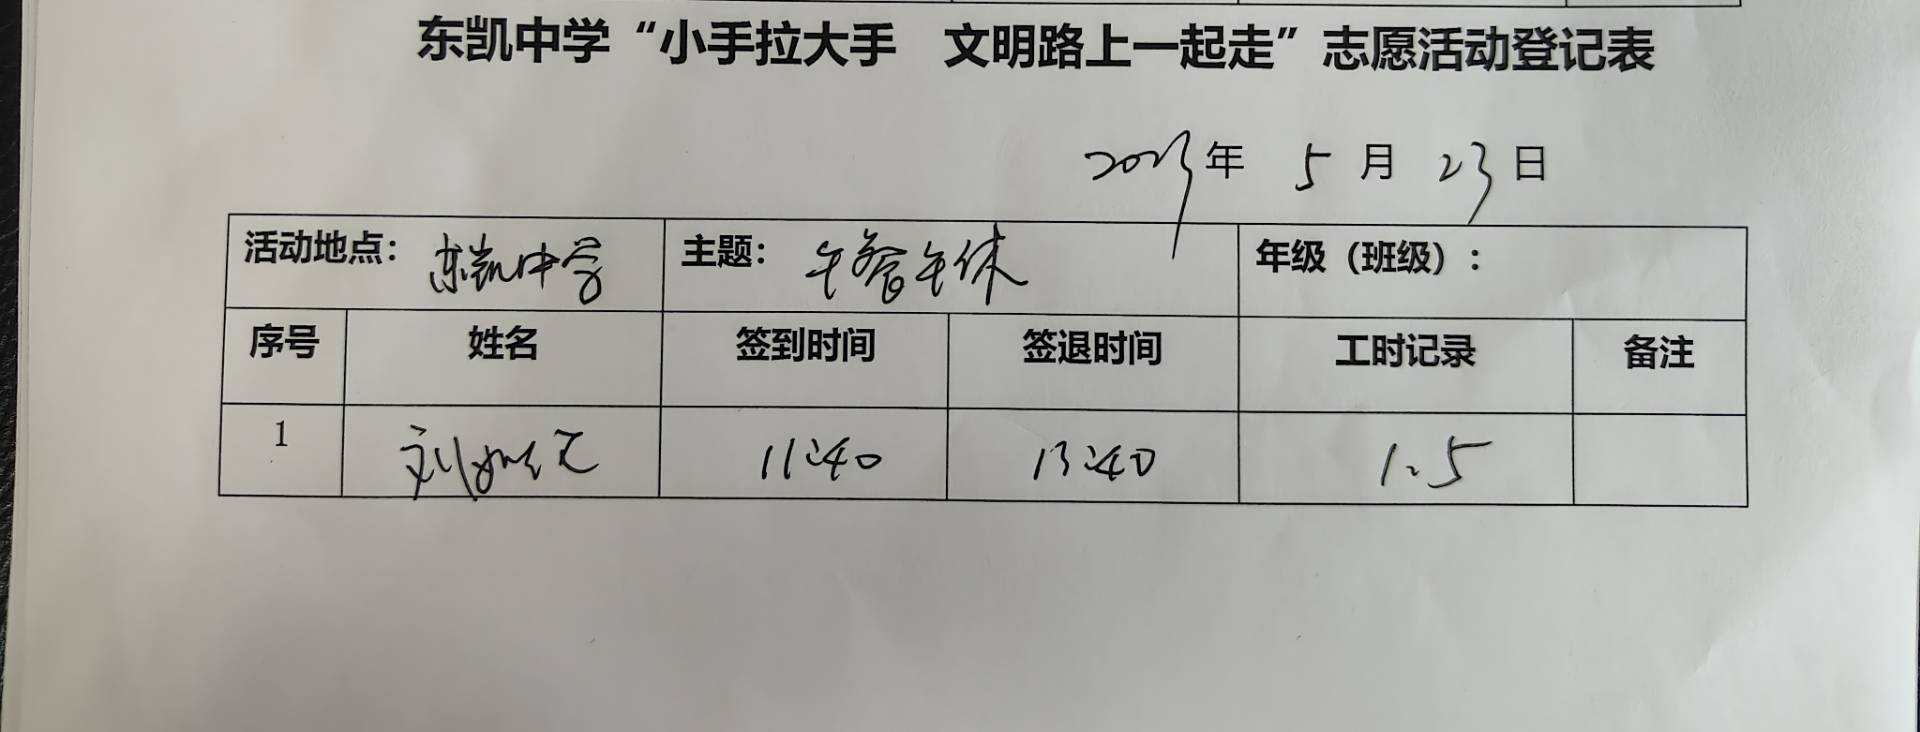 东凯中学“小手拉大手 文明路上一起走”志愿活动登记表
2023年 5 月 23 日
活动地点：东凯中学 主题：午餐午休 年级（班级）：
序号 姓名 签到时间 签退时间 工时记录 备注
1 刘 11:40 13:40 1.5